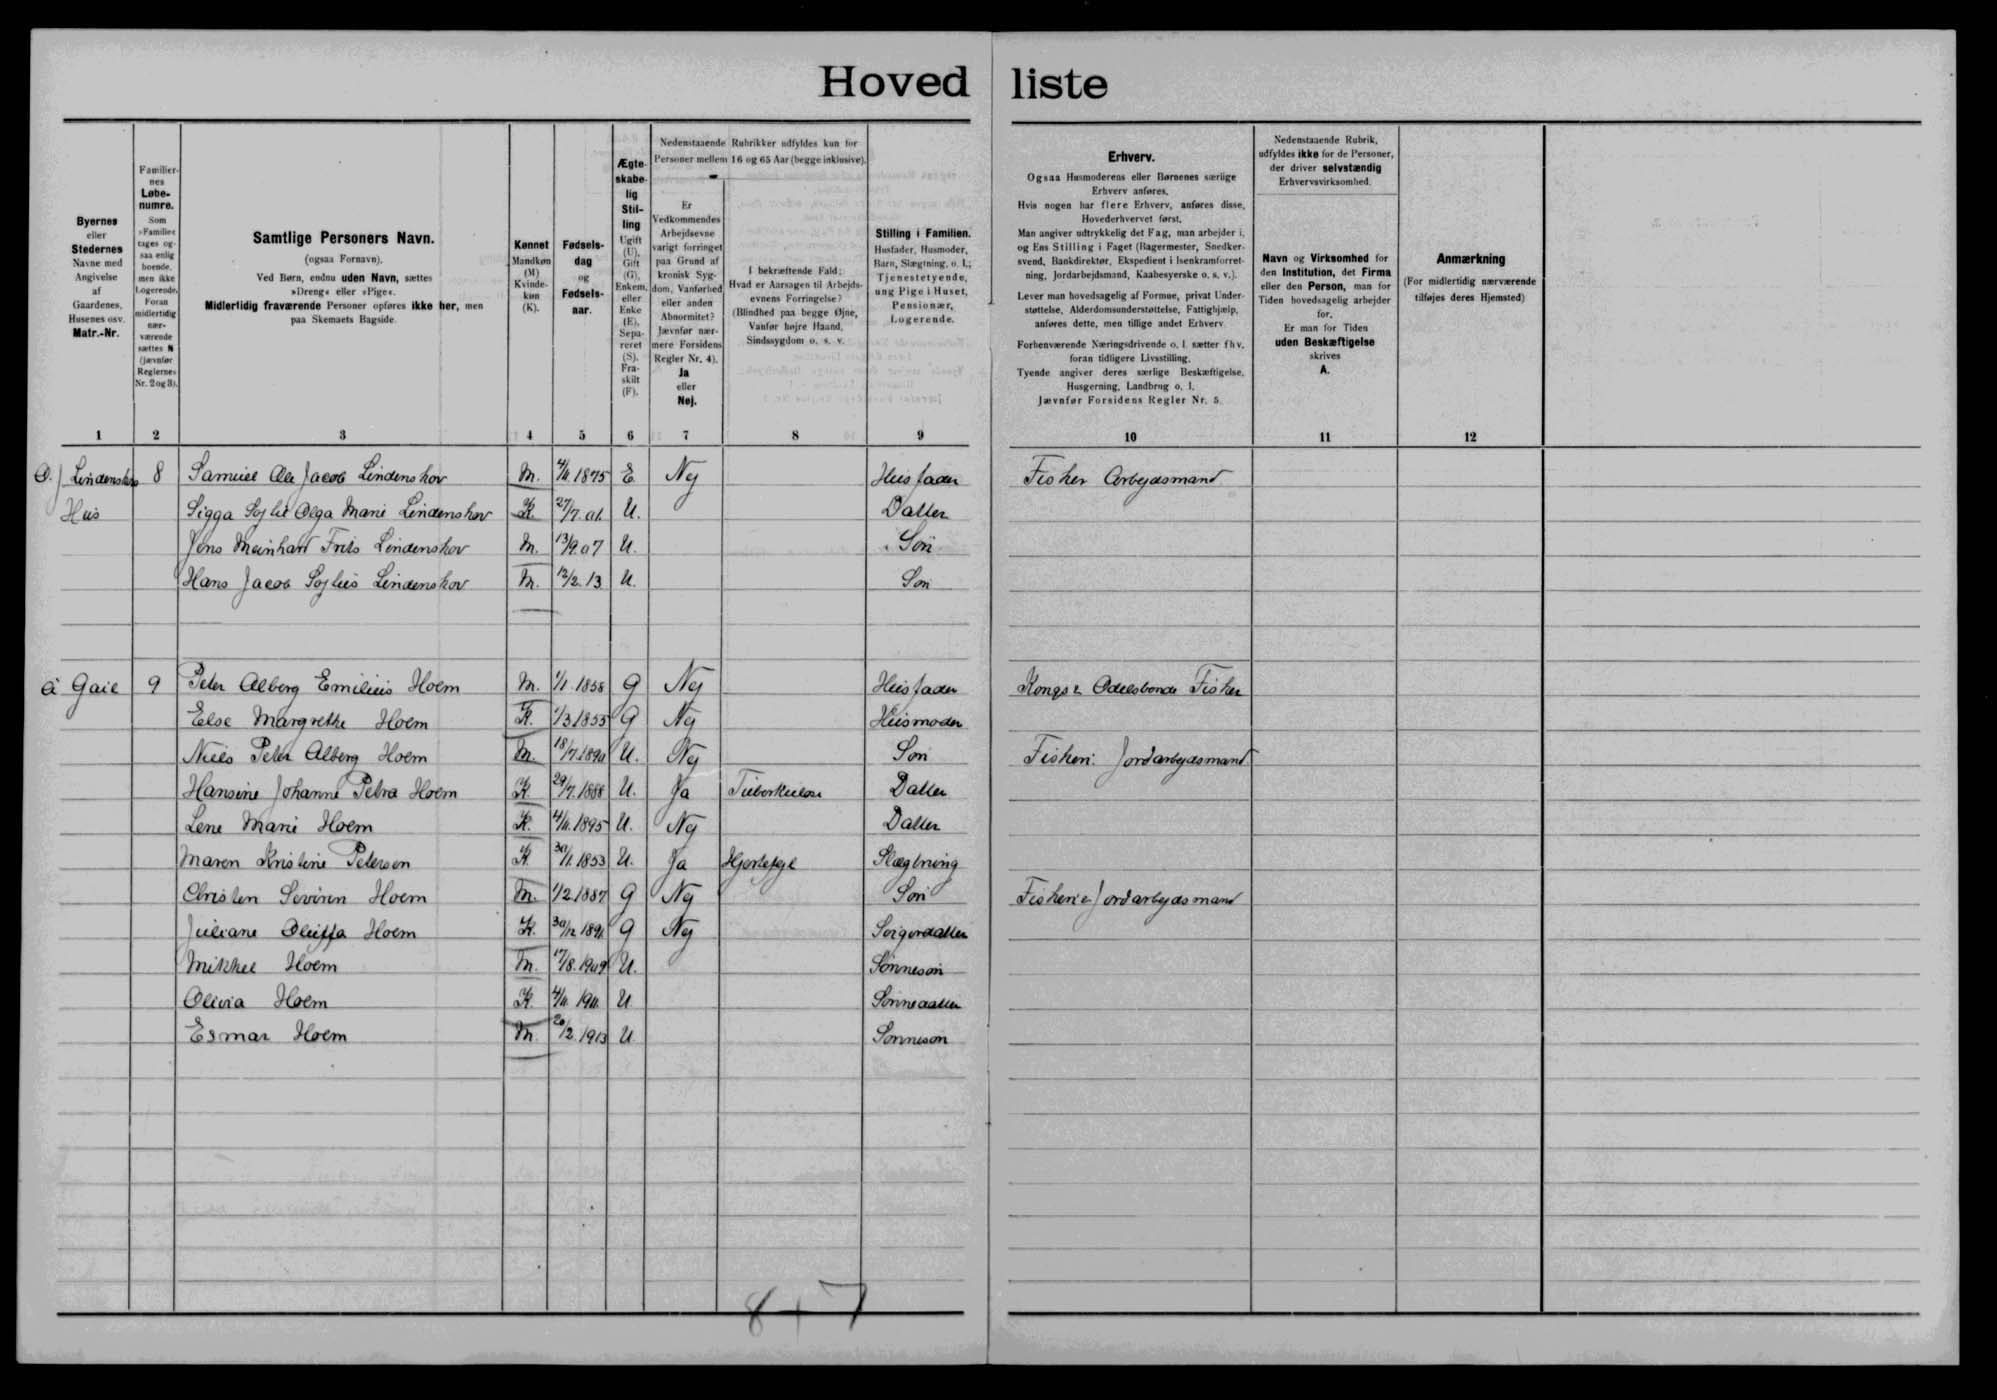 Hoved liste
Byernes
eller
Stedernes
Navne med
Angivelse
af
Gaardenes,
Husenes osv.
Matr.-Nr.
Familier-
nes
Løbe-
numre.
Som
»Familie«
tages og-
saa enlig
boende,
men ikke
Logerende.
Foran
midlertidig
nær-
værende
sættes N
(jævnfør
Reglernes
Nr. 2 og 3).
Samtlige Personers Navn.
(ogsaa Fornavn).
Ved Børn, endnu uden Navn, sættes
»Dreng« eller »Pige«.
Midlertidig fraværende Personer opføres ikke her, men
paa Skemaets Bagside.
Kønnet
Mandkøn
(M)
Kvinde-
køn
(K).
Fødsels-
dag
og
Fødsels-
aar.
Ægte-
skabe-
lig
Stil-
ling
Ugift
(U),
Gift
(G),
Enkem.
eller
Enke
(E),
Sepa-
reret
(S).
Fra-
skilt
(F).
Nedenstaaende Rubrikker udfyldes kun for
Personer mellem 16 og 65 Aar (begge inklusive).
Er
Vedkommendes
Arbejdsevne
varigt forringet
paa Grund af
kronisk Syg-
dom, Vanførhed
eller anden
Abnormitet?
Jævnfør nær-
mere Forsidens
Regler Nr. 4).
Ja
eller
Nej.
I bekræftende Fald:
Hvad er Aarsagen til Arbejds-
evnens Forringelse?
(Blindhed paa begge Øjne,
Vanfør højre Haand,
Sindssygdom o. s. v.
Stilling i Familien.
Husfader, Husmoder,
Barn, Slægtning, o. l.;
Tjenestetyende,
ung Pige i Huset,
Pensionær,
Logerende.
Erhverv.
Ogsaa Husmoderens eller Børnenes særlige
Erhverv anføres.
Hvis nogen har flere Erhverv, anføres disse,
Hovederhvervet først.
Man angiver udtrykkelig det Fag, man arbejder i,
og Ens Stilling i Faget (Bagermester, Snedker-
svend, Bankdirektør, Ekspedient i Isenkramforret-
ning, Jordarbejdsmand, Kaabesyerske o. s. v.).
Lever man hovedsagelig af Formue, privat Under-
støttelse, Alderdomsunderstøttelse, Fattighjælp,
anføres dette, men tillige andet Erhverv.
Forhenværende Næringsdrivende o. l. sætter fhv.
foran tidligere Livsstilling.
Tyende angiver deres særlige Beskæftigelse,
Husgerning, Landbrug o. l.
Jævnfør Forsidens Regler Nr. 5.
Nedenstaaende Rubrik,
udfyldes ikke for de Personer,
der driver selvstændig
Erhvervsvirksomhed.
Navn og Virksomhed for
den Institution, det Firma
eller den Person, man for
Tiden hovedsagelig arbejder
for.
Er man for Tiden
uden Beskæftigelse
skrives
A.
Anmærkning
(For midlertidig nærværende
tilføjes deres Hjemsted)
1 2 3 4 5 6 7 8 9 10 11 12
Lindenskovs 8 Samuel Ole Jacob Lindenskov M. 4/11.1875 E. Nej Husfader Fisker Arbejdsmand
Hus Sigga Sofie Olga Marie Lindenskov K. 27/7.01. U. Datter
Jens Meinhard Frits Lindenskov M. 13/9.07 U. Søn
Hans Jacob Sofus Lindenskov M. 12/2.13 U. Søn
á Gail 9 Peter Alberg Emilius Hoem M. 1/1.1858 G Nej Husfader Kongs & Odelsbonde Fisker
Else Margrethe Hoem K. 1/3.1855 G Nej Husmoder
Niels Peter Alberg Hoem M. 18/7.1890 U. Nej Søn Fiskeri Jordarbejdsmand
Hansine Johanne Petra Hoem K. 29/7.1888 U. Ja Tuberkulose Datter
Lene Marie Hoem K. 4/11.1895 U. Nej Datter
Maren Kristine Petersen K. 30/1.1853 U. Ja Hjertefejl Slægtning
Christen Severin Hoem M. 1/2.1887 G Nej Søn Fiskeri & Jordarbejdsmand
Juliane Hoem K. 30/12.1891 G Nej Svigerdatter
Mikkel Hoem M. 17/8.1909 U. Sønnesøn
Olivia Hoem K. 4/11.1911. U Sønnedatter
Esmar Hoem M. 20/2.1913 U Sønnesøn
8+7